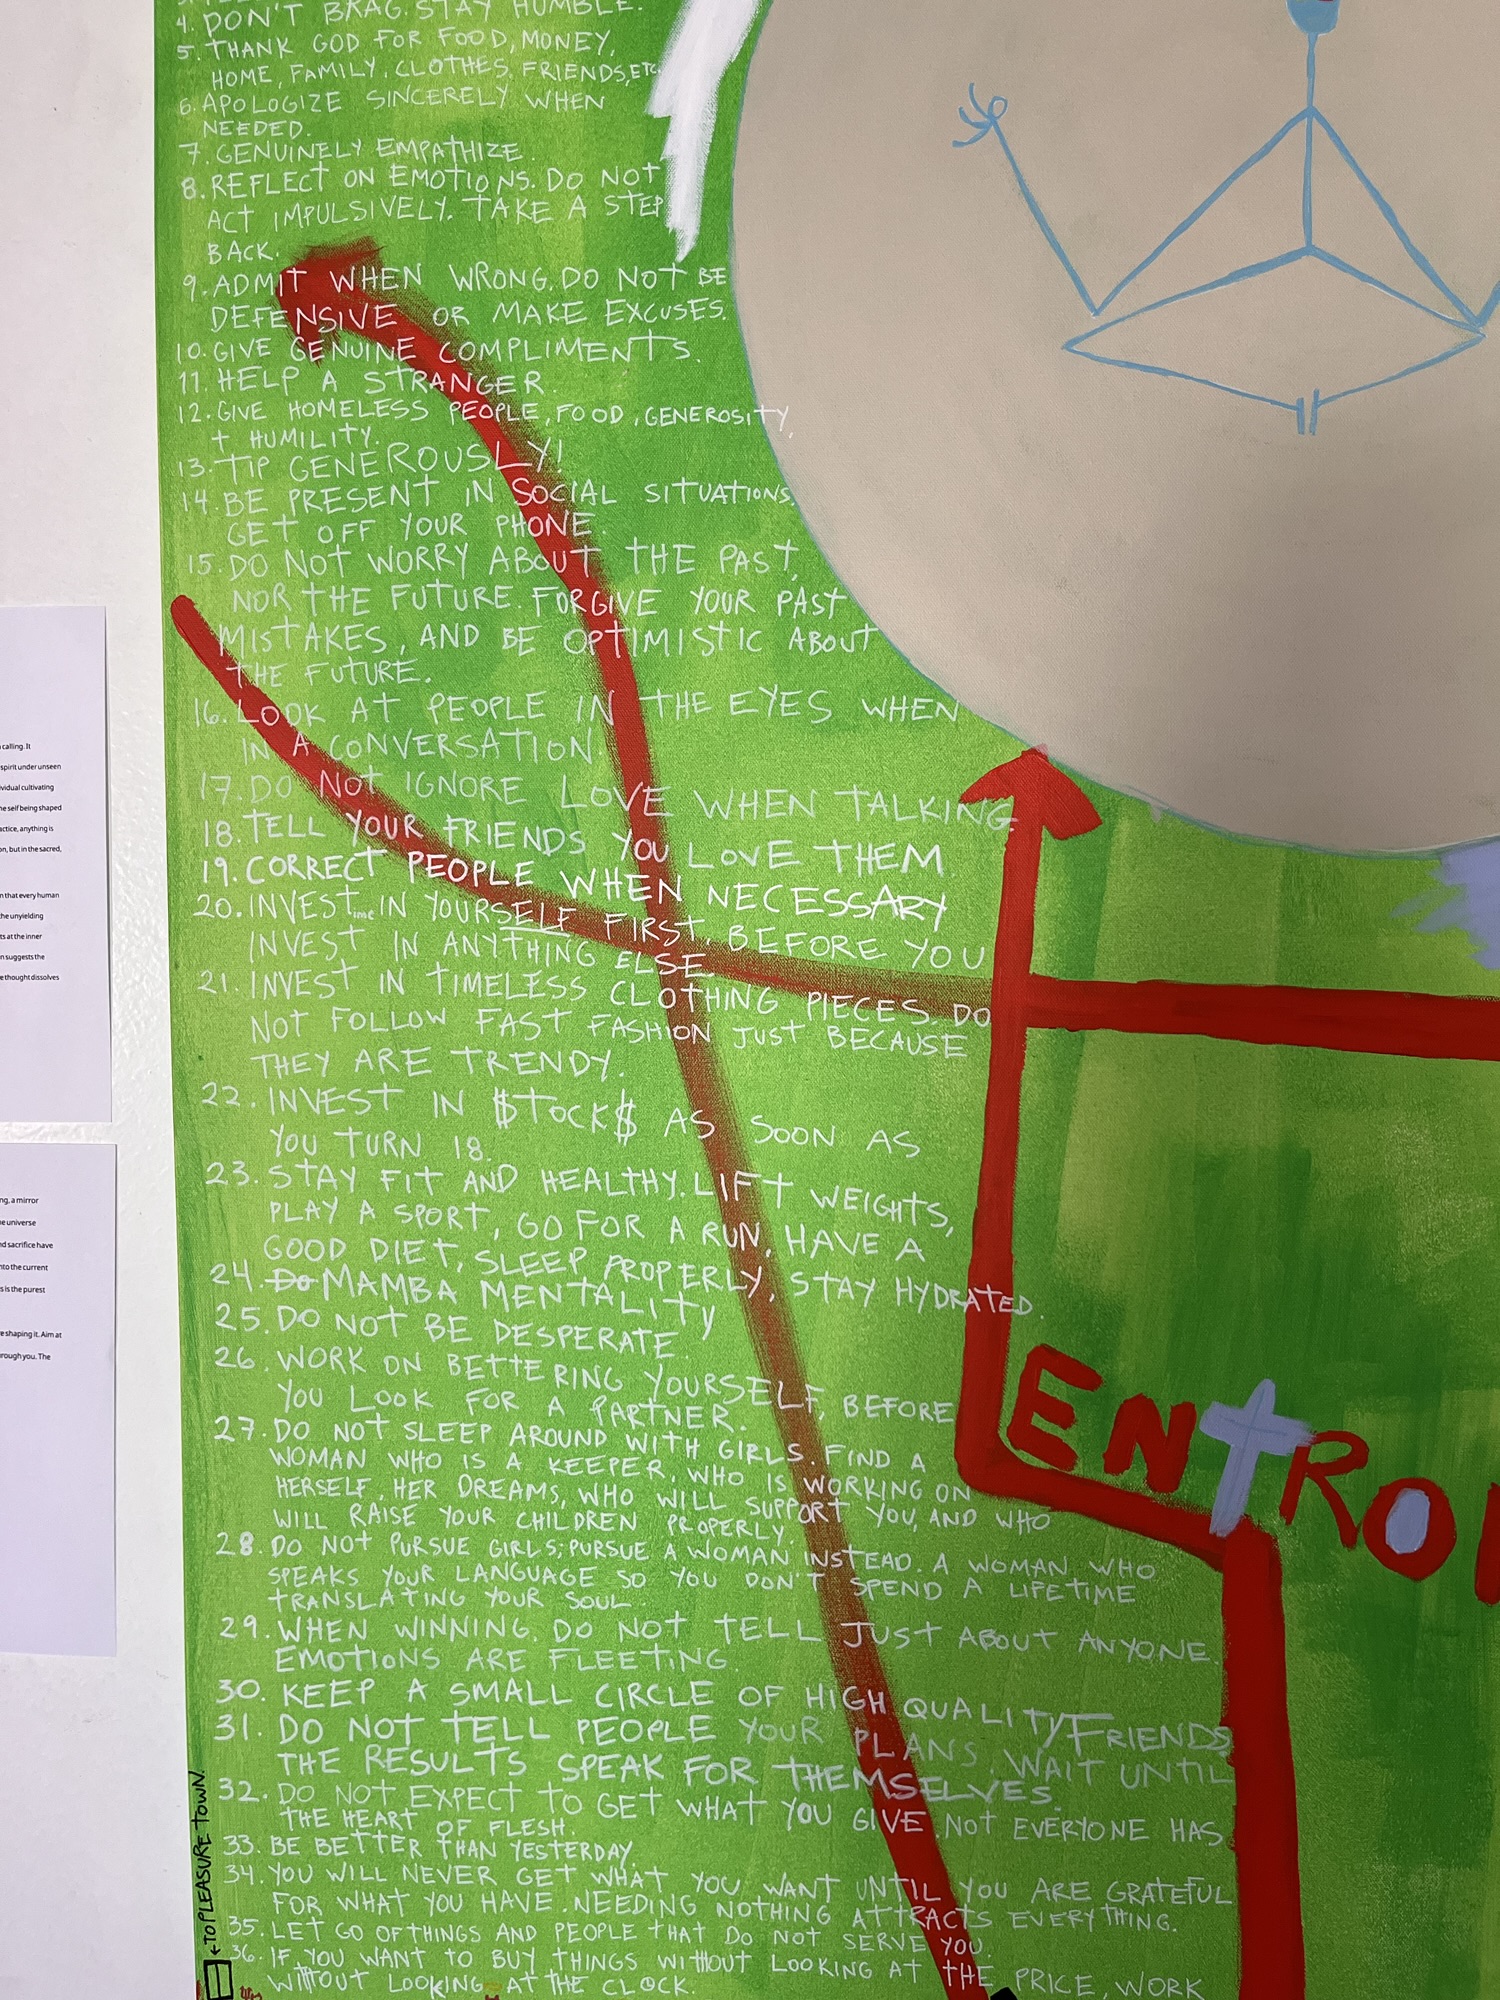 4. DON'T BRAG. STAY HUMBLE.
5. THANK GOD FOR FOOD, MONEY,
HOME, FAMILY, CLOTHES, FRIENDS, ETC.
6. APOLOGIZE SINCERELY WHEN
NEEDED.
7. GENUINELY EMPATHIZE.
8. REFLECT ON EMOTIONS. DO NOT
ACT IMPULSIVELY. TAKE A STEP
BACK.
9. ADMIT WHEN WRONG. DO NOT BE
DEFENSIVE OR MAKE EXCUSES.
10. GIVE GENUINE COMPLIMENTS.
11. HELP A STRANGER.
12. GIVE HOMELESS PEOPLE, FOOD, GENEROSITY,
+ HUMILITY.
13. TIP GENEROUSLY!
14. BE PRESENT IN SOCIAL SITUATIONS.
GET OFF YOUR PHONE.
15. DO NOT WORRY ABOUT THE PAST,
NOR THE FUTURE. FORGIVE YOUR PAST
MISTAKES, AND BE OPTIMISTIC ABOUT
THE FUTURE.
16. LOOK AT PEOPLE IN THE EYES WHEN
IN A CONVERSATION.
17. DO NOT IGNORE LOVE WHEN TALKING.
18. TELL YOUR FRIENDS YOU LOVE THEM
19. CORRECT PEOPLE WHEN NECESSARY
20. INVEST ime IN YOURSELF FIRST, BEFORE YOU
INVEST IN ANYTHING ELSE.
21. INVEST IN TIMELESS CLOTHING PIECES. DO
NOT FOLLOW FAST FASHION JUST BECAUSE
THEY ARE TRENDY.
22. INVEST IN $TOCK$ AS SOON AS
YOU TURN 18.
23. STAY FIT AND HEALTHY. LIFT WEIGHTS,
PLAY A SPORT, GO FOR A RUN, HAVE A
GOOD DIET, SLEEP PROPERLY, STAY HYDRATED.
24. DO MAMBA MENTALITY
25. DO NOT BE DESPERATE.
26. WORK ON BETTERING YOURSELF, BEFORE
YOU LOOK FOR A PARTNER.
27. DO NOT SLEEP AROUND WITH GIRLS. FIND A
WOMAN WHO IS A KEEPER, WHO IS WORKING ON
HERSELF, HER DREAMS, WHO WILL SUPPORT YOU, AND WHO
WILL RAISE YOUR CHILDREN PROPERLY.
28. DO NOT PURSUE GIRLS; PURSUE A WOMAN INSTEAD. A WOMAN WHO
SPEAKS YOUR LANGUAGE SO YOU DON'T SPEND A LIFETIME
TRANSLATING YOUR SOUL.
29. WHEN WINNING, DO NOT TELL JUST ABOUT ANYONE.
EMOTIONS ARE FLEETING.
30. KEEP A SMALL CIRCLE OF HIGH QUALITY FRIENDS
31. DO NOT TELL PEOPLE YOUR PLANS, WAIT UNTIL
THE RESULTS SPEAK FOR THEMSELVES.
32. DO NOT EXPECT TO GET WHAT YOU GIVE. NOT EVERYONE HAS
THE HEART OF FLESH.
33. BE BETTER THAN YESTERDAY.
34. YOU WILL NEVER GET WHAT YOU WANT UNTIL YOU ARE GRATEFUL
FOR WHAT YOU HAVE. NEEDING NOTHING ATTRACTS EVERYTHING.
35. LET GO OF THINGS AND PEOPLE THAT DO NOT SERVE YOU.
36. IF YOU WANT TO BUY THINGS WITHOUT LOOKING AT THE PRICE, WORK
WITHOUT LOOKING AT THE CLOCK.
←TO PLEASURE TOWN.
ENTRO
calling. It
spirit under unseen
vidual cultivating
he self being shaped
actice, anything is
on, but in the sacred,
n that every human
the unyielding
ts at the inner
n suggests the
e thought dissolves
ng, a mirror
e universe
nd sacrifice have
nto the current
s is the purest
e shaping it. Aim at
rough you. The